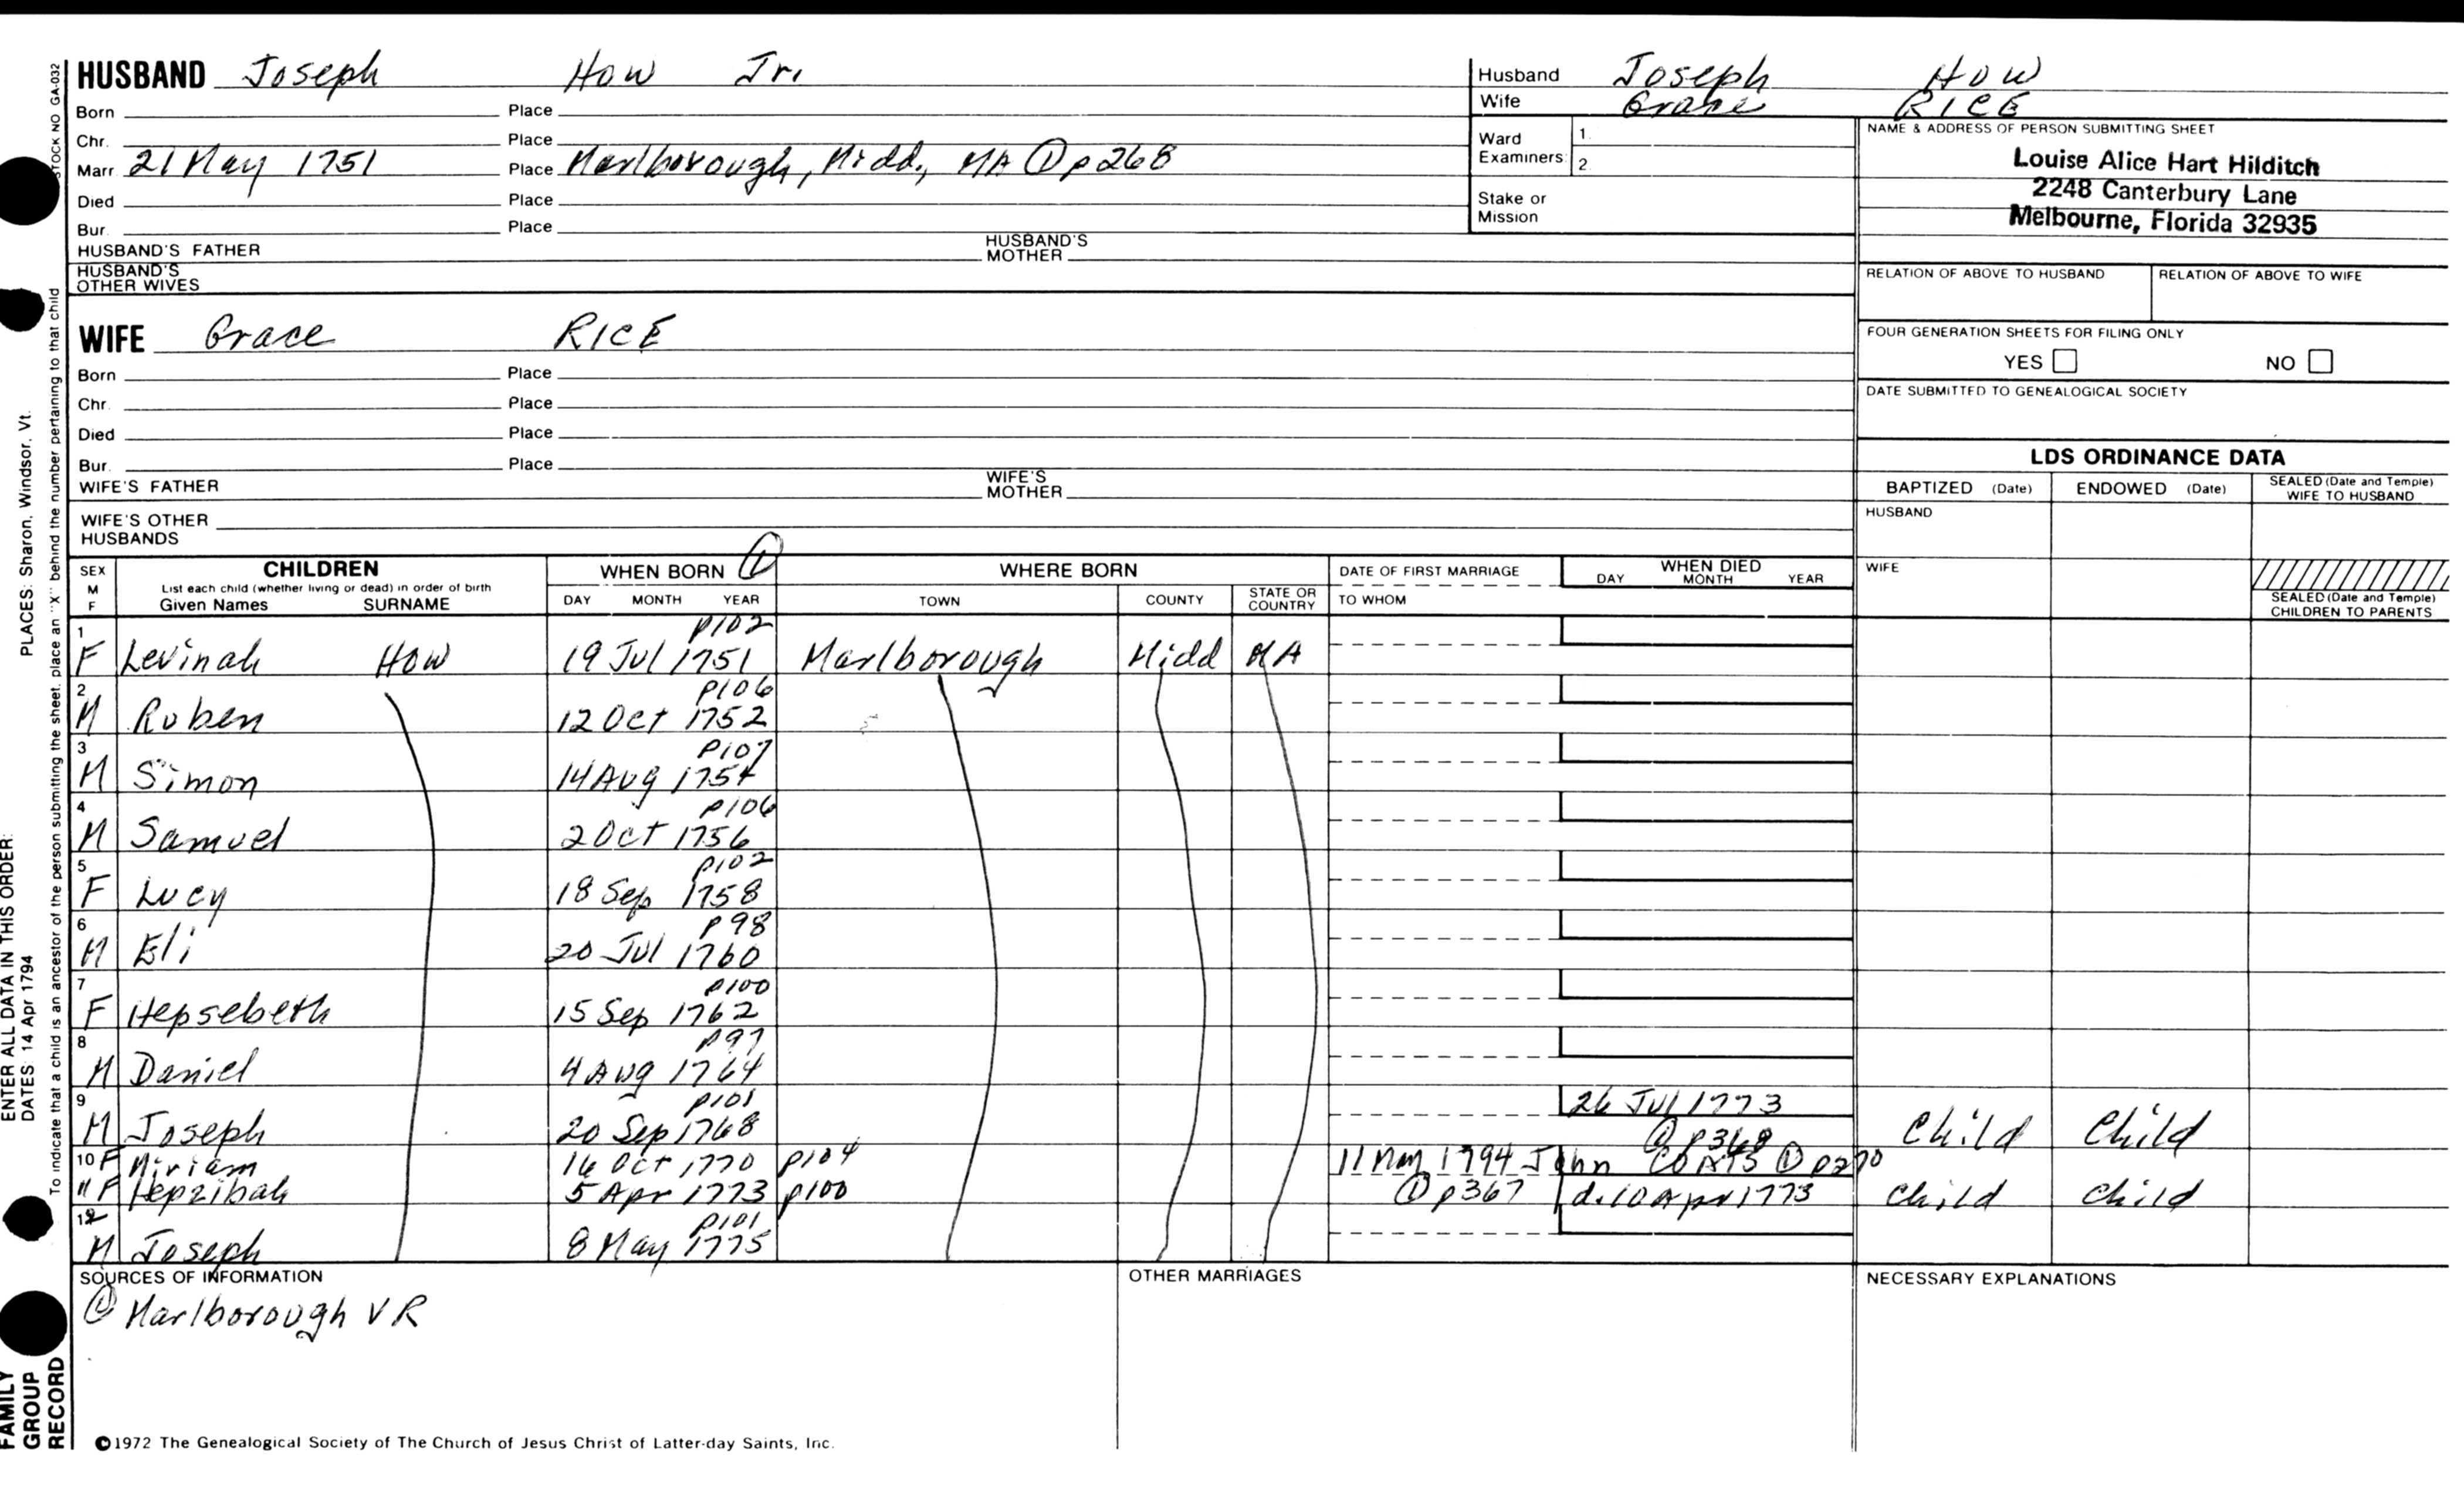 HUSBAND Joseph How Jr.
Born Place
Chr. Place
Marr. 21 May 1751 Place Marlborough, Midd., MA ① p268
Died Place
Bur. Place
HUSBAND'S FATHER HUSBAND'S MOTHER
HUSBAND'S OTHER WIVES
WIFE Grace RICE
Born Place
Chr. Place
Died Place
Bur. Place
WIFE'S FATHER WIFE'S MOTHER
WIFE'S OTHER HUSBANDS
Husband Joseph How
Wife Grace RICE
Ward Examiners: 1.
2.
Stake or Mission
NAME & ADDRESS OF PERSON SUBMITTING SHEET
Louise Alice Hart Hilditch
2248 Canterbury Lane
Melbourne, Florida 32935
RELATION OF ABOVE TO HUSBAND RELATION OF ABOVE TO WIFE
FOUR GENERATION SHEETS FOR FILING ONLY
YES NO
DATE SUBMITTED TO GENEALOGICAL SOCIETY
LDS ORDINANCE DATA
BAPTIZED (Date) ENDOWED (Date) SEALED (Date and Temple) WIFE TO HUSBAND
HUSBAND
WIFE
SEALED (Date and Temple) CHILDREN TO PARENTS
SEX M F
CHILDREN
List each child (whether living or dead) in order of birth
Given Names SURNAME
WHEN BORN ①
DAY MONTH YEAR
WHERE BORN
TOWN COUNTY STATE OR COUNTRY
DATE OF FIRST MARRIAGE
TO WHOM
WHEN DIED
DAY MONTH YEAR
1 F Levinah How 19 Jul 1751 p102 Marlborough Midd MA
2 M Ruben 12 Oct 1752 p106
3 M Simon 14 Aug 1754 p107
4 M Samuel 2 Oct 1756 p106
5 F Lucy 18 Sep 1758 p102
6 M Eli 20 Jul 1760 p98
7 F Hepsebeth 15 Sep 1762 p100
8 M Daniel 4 Aug 1764 p97
9 M Joseph 20 Sep 1768 p101 26 Jul 1773 ① p368 Child Child
10 F Miriam 16 Oct 1770 p104 11 1794 John COATS ① p270
11 F Hepzibah 5 Apr 1773 p100 ① p367 d. 10 Apr 1773 Child Child
12 M Joseph 8 May 1775 p101
SOURCES OF INFORMATION
① Marlborough VR
OTHER MARRIAGES
NECESSARY EXPLANATIONS
©1972 The Genealogical Society of The Church of Jesus Christ of Latter-day Saints, Inc.
STOCK NO GA-032
To indicate that a child is an ancestor of the person submitting the sheet, place an "X" behind the number pertaining to that child
ENTER ALL DATA IN THIS ORDER:
DATES: 14 Apr 1794 PLACES: Sharon, Windsor, Vt.
FAMILY
GROUP
RECORD